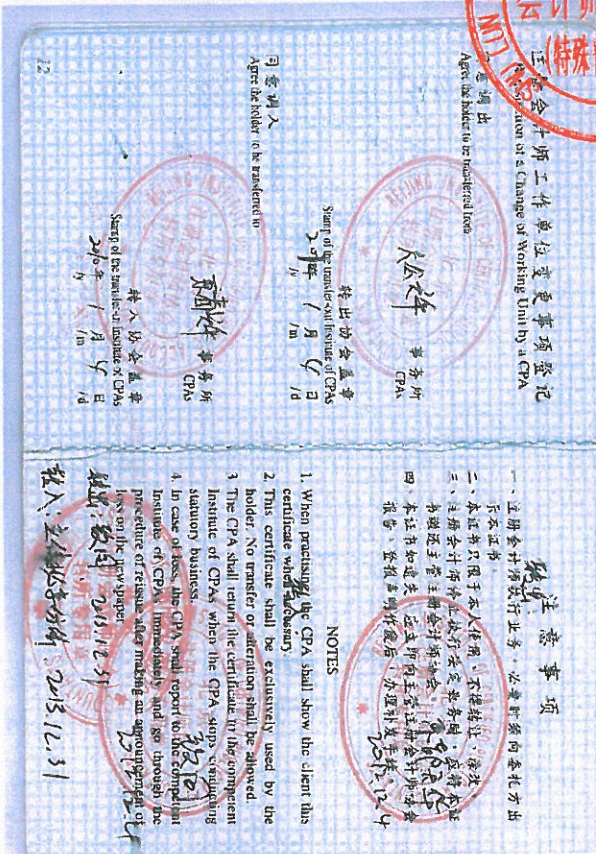 注册会计师工作单位变更事项登记
Registration of a Change of Working Unit by a CPA
同意调出
Agree the holder to be transferred from
事务所
CPAs
转出协会盖章
Stamp of the transfer-out Institute of CPAs
年 1 月 4 日
/y /m /d
同意调入
Agree the holder to be transferred to
事务所
CPAs
转入协会盖章
Stamp of the transfer-in Institute of CPAs
2010 年 1 月 4 日
/y /m /d
12
注意事项
一、注册会计师执行业务，必要时须向委托方出
示本证书。
二、本证书只限于本人使用，不得转让、涂改。
三、注册会计师停止执行法定业务时，应将本证
书缴还主管注册会计师协会。
四、本证书如遗失，应立即向主管注册会计师协会
报告，登报声明作废后，办理补发手续。
2012.12.4
NOTES
1. When practising, the CPA shall show the client this
certificate when necessary.
2. This certificate shall be exclusively used by the
holder. No transfer or alteration shall be allowed.
3. The CPA shall return the certificate to the competent
Institute of CPAs when the CPA stops conducting
statutory business.
4. In case of loss, the CPA shall report to the competent
Institute of CPAs immediately and go through the
procedure of reissue after making an announcement of
loss on the newspaper.
致同
2012.12.4
转出：致同 2013.12.31
转入：立信 2013.12.31
会计师
(特殊
SHU LUN